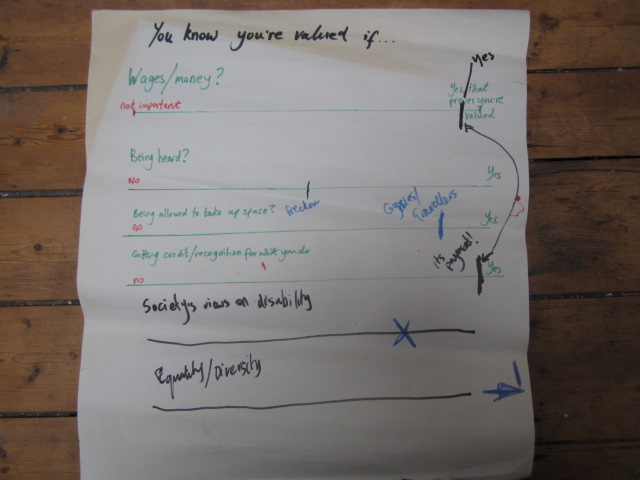 You know you're valued if...
yes
Wages/money?
Yes that
proves you're
valued
not important
Being heard?
No
Yes
Being allowed to take up space?
freedom
Gypsies/
Travellers
no
Yes
Getting credit/recognition for what you do
its payment!
no
Yes
Societys views on disability
Equality/Diversity